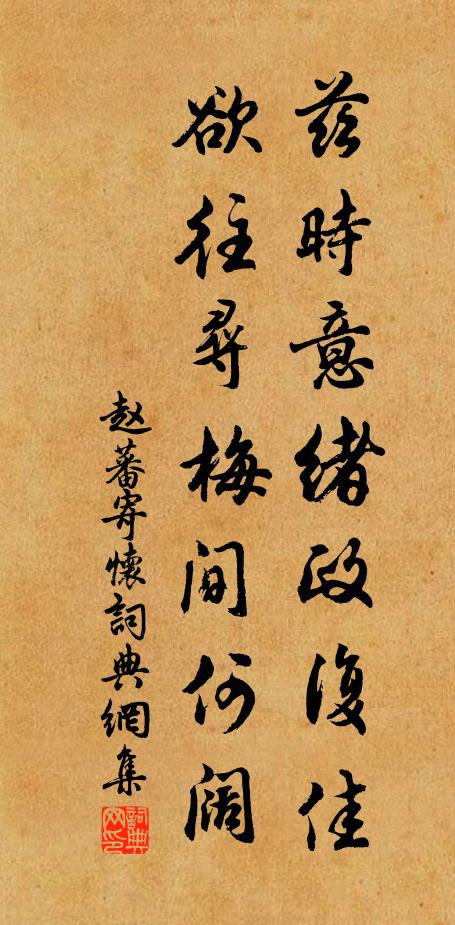 茲時意緒政復佳
欲往尋梅間何闊
赵蕃寄懷詞典網集
詞典網印